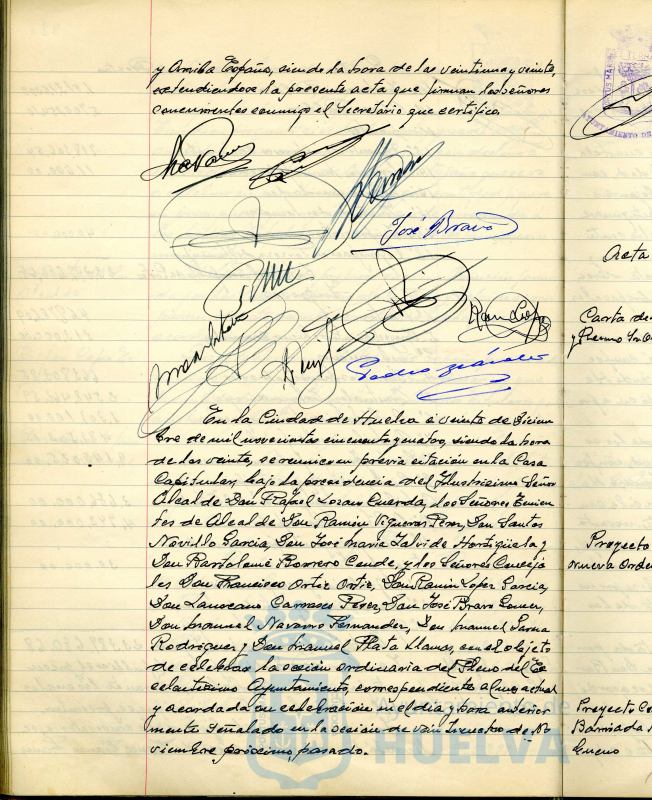 y Arriba España, siendo la hora de las veintiuna y veinte,
extendiendose la presente acta que firman los señores
concurrentes conmigo el Secretario que certifico.
José Bravo
Ramon Lopez
Pedro
En la Ciudad de Huelva a veinte de Diciem
bre de mil novecientos cincuenta y cuatro, siendo la hora
de las veinte, se reunieron previa citación en la Casa
Capitular, bajo la presidencia del Ilustrisimo Señor
Alcalde Don Rafael Lozano Cuerda, los Señores Tenien
tes de Alcalde Don Ramón Vigueras Perez, Don Santos
Novillo Garcia, Don José Maria Jalvi de Hortigüela y
Don Bartolomé Borrero Conde, y los Señores Conceja
les Don Francisco Ortiz Ortiz, Don Ramón Lopez Garcia,
Don Laureano Carrasco Perez, Don José Bravo Gomez,
Don Manuel Navarro Fernandez, Don Manuel Serna
Rodriguez y Don Manuel Plata Llanos, con el objeto
de celebrar la sesión ordinaria del Pleno del Ex
celentisimo Ayuntamiento, correspondiente al mes actual
y acordada su celebración en el dia y hora anterior
mente señalado en la sesión de veinticuatro de No
viembre próximo pasado.
HUELVA
Acta
Carta de
Proyecto
nueva Orden
Proyecto Co
Barriada